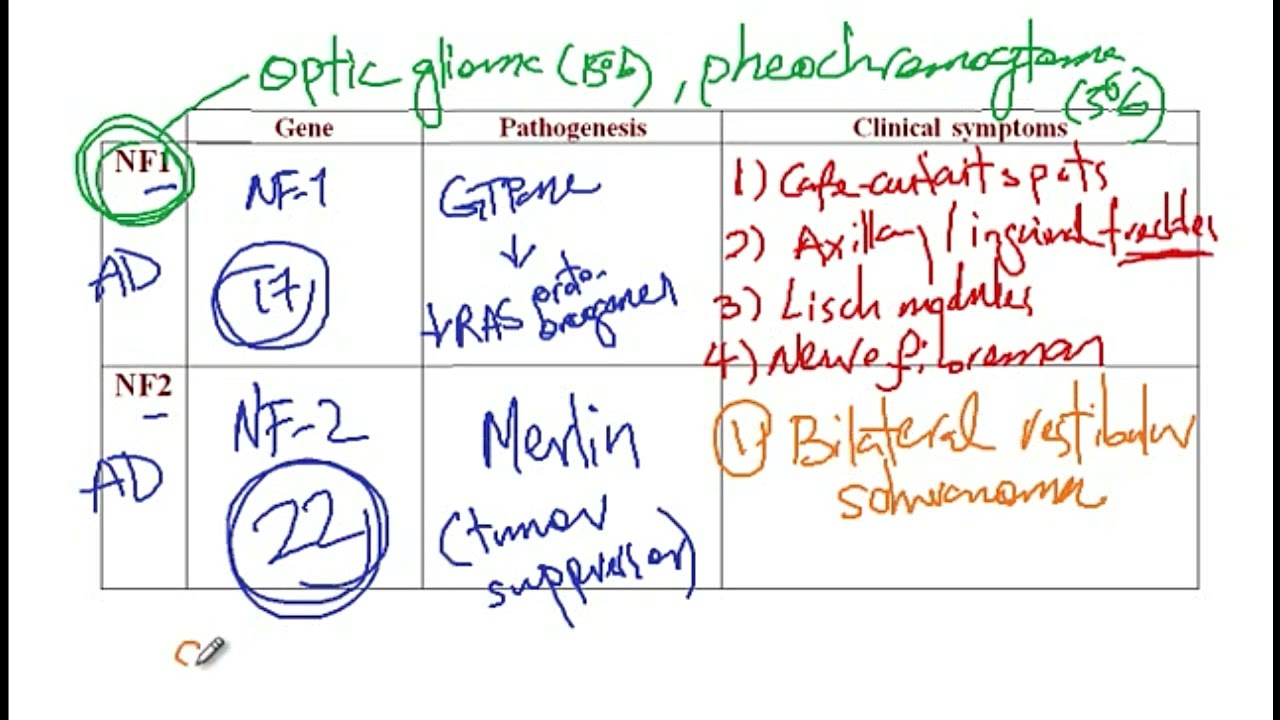 optic glioma (15%), pheochromocytoma
(3%)
Gene Pathogenesis Clinical symptoms
NF1
AD
NF-1
17
GTPase
↓
↓RAS proto-
oncogenes
1) Cafe-au-lait spots
2) Axillary / inguinal freckles
3) Lisch nodules
4) Neurofibromas
NF2
AD
NF-2
22
Merlin
(tumor
suppressor)
1) Bilateral vestibular
schwannoma